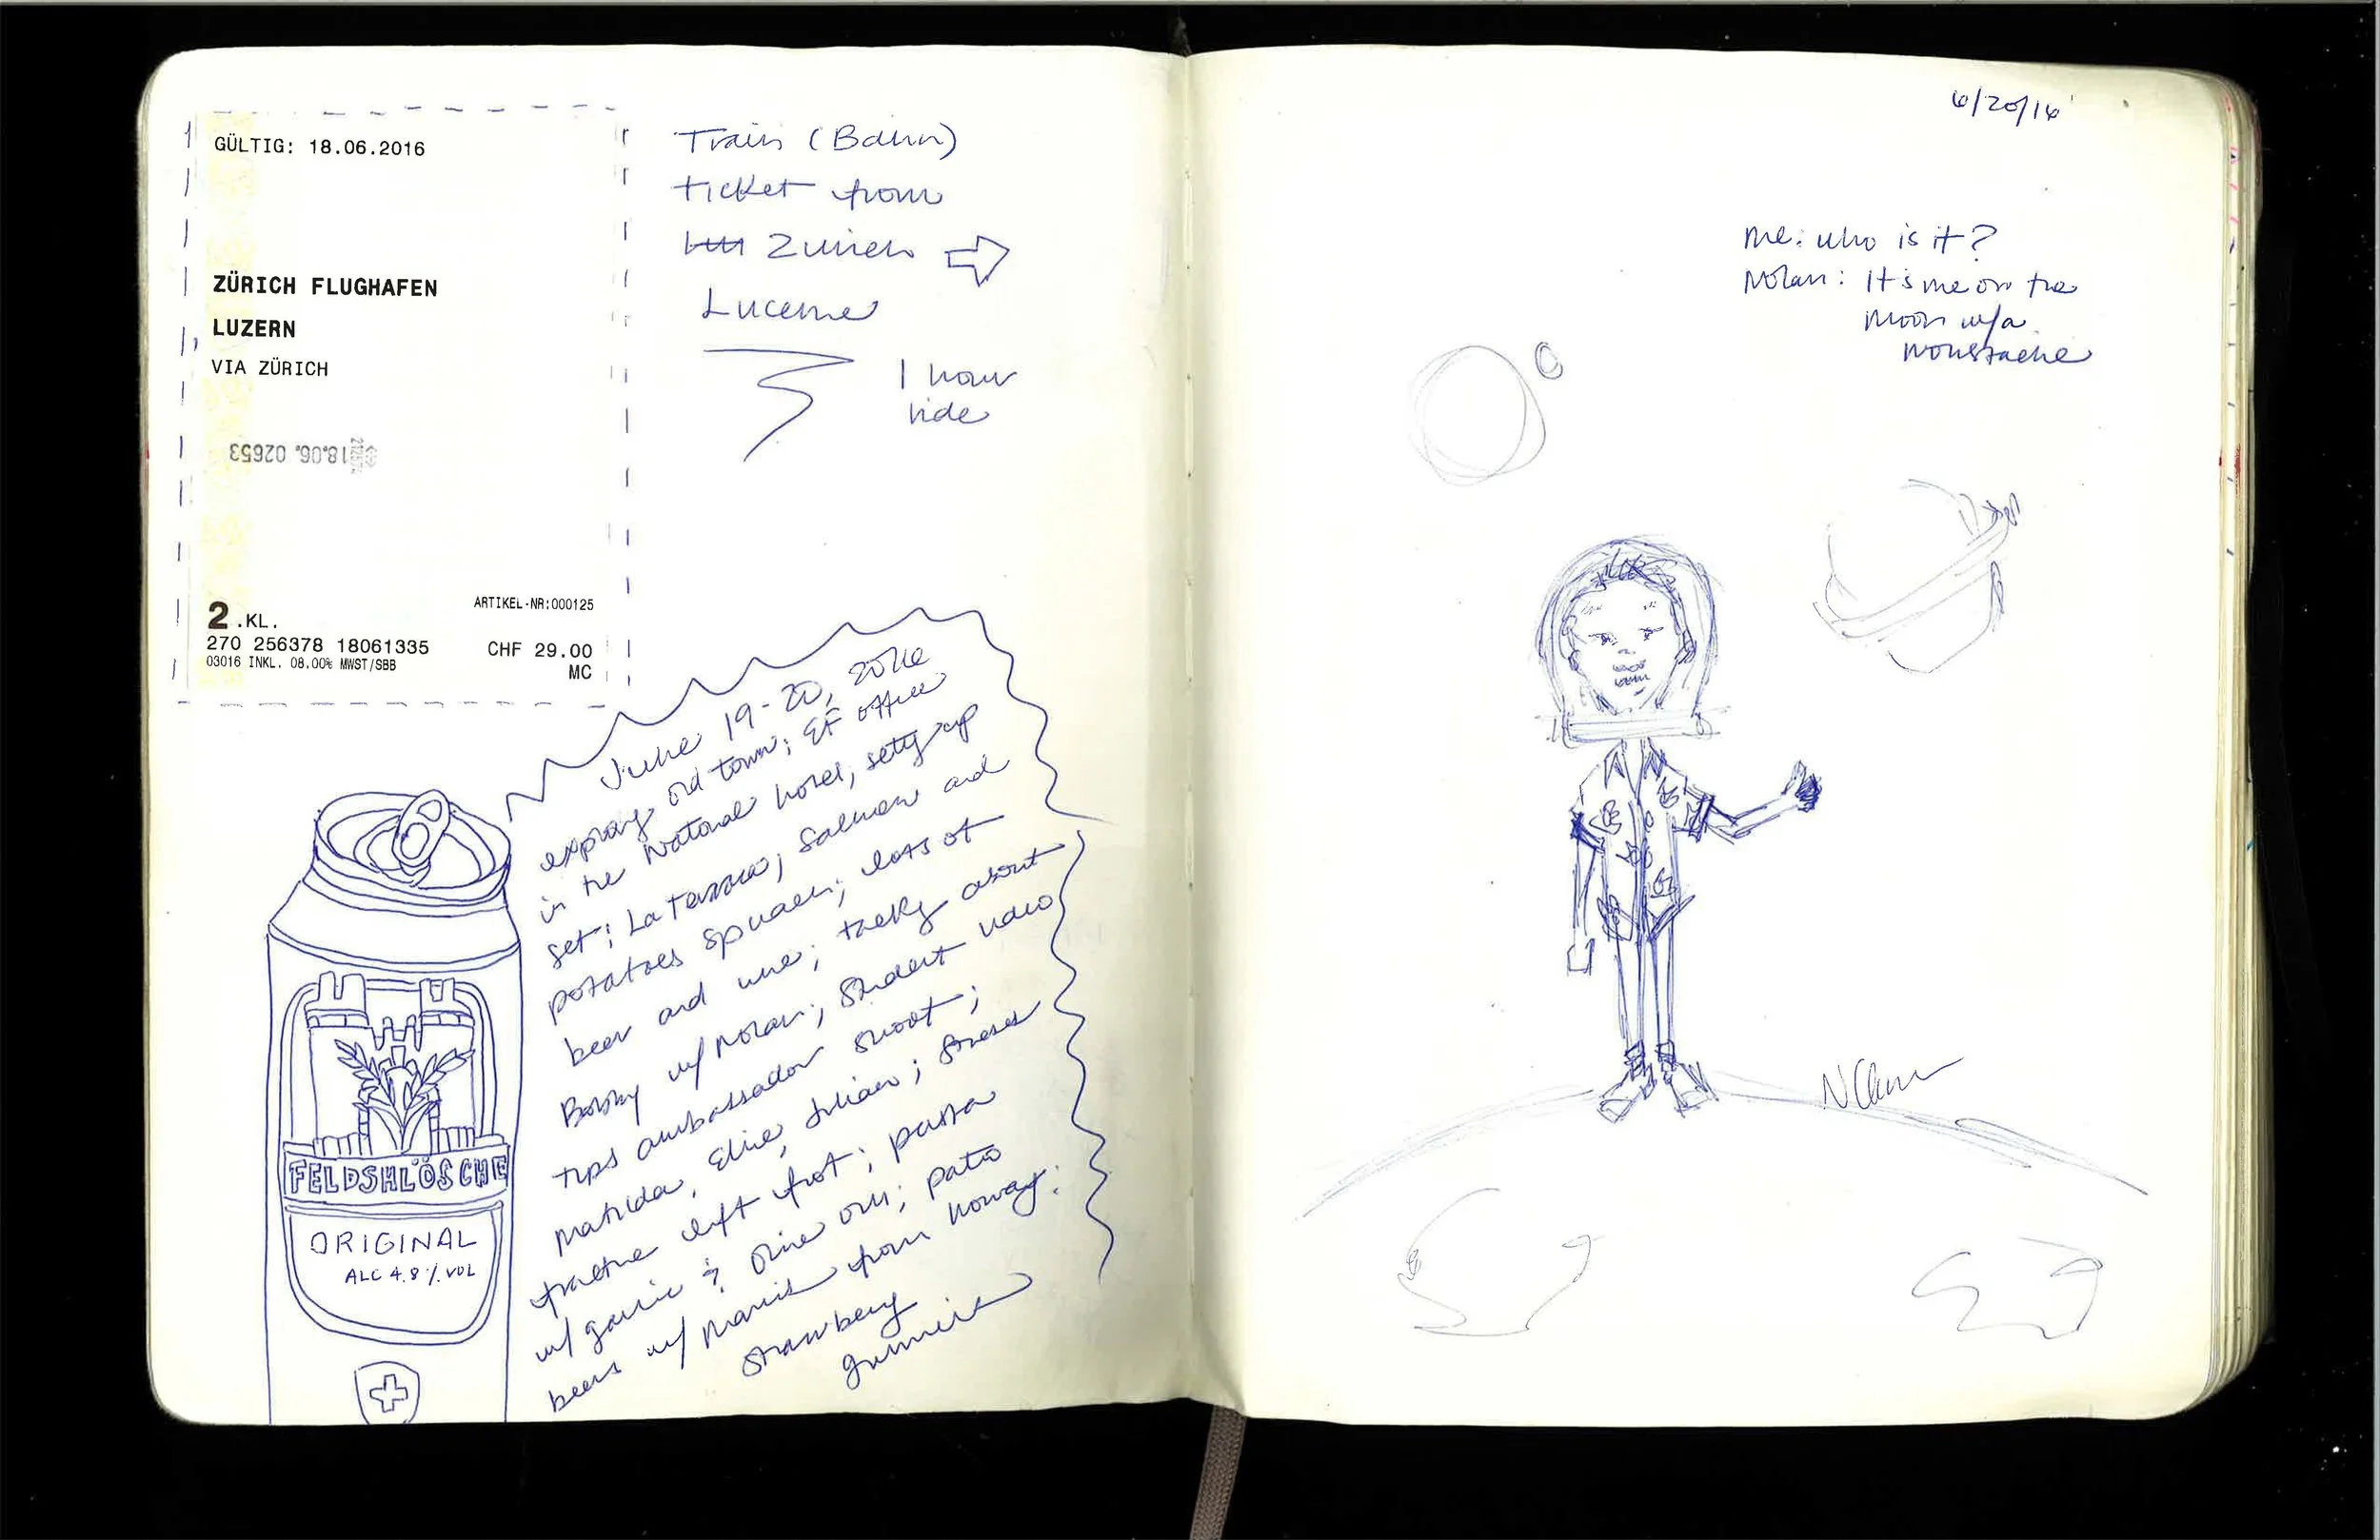 GÜLTIG: 18.06.2016
ZÜRICH FLUGHAFEN
LUZERN
VIA ZÜRICH
18.06. 02653
ARTIKEL-NR:000125
2.KL.
270 256378 18061335 CHF 29.00
03016 INKL. 08.00% MWST/SBB MC
Train (Bahn)
ticket from
Zurich
Lucerne
1 hour
ride
June 19-20, 2016
exploring old town; EF office
in the National hotel, setting up
set; La Terrazza; Salmon and
potatoes spinach; lots of
beer and wine; talking about
Bobby w/ Nolan; Student video
tips ambassador shoot;
Matilda, Ellie, Julian; Stress
fracture left foot; pasta
w/ garlic & olive oil; patio
beers w/ from Norway;
Strawberry
gummies
FELDSHLÖSCHE
ORIGINAL
ALC 4.8%.VOL
6/20/16
Me: who is it?
Nolan: It's me on the
moon w/a
moustache